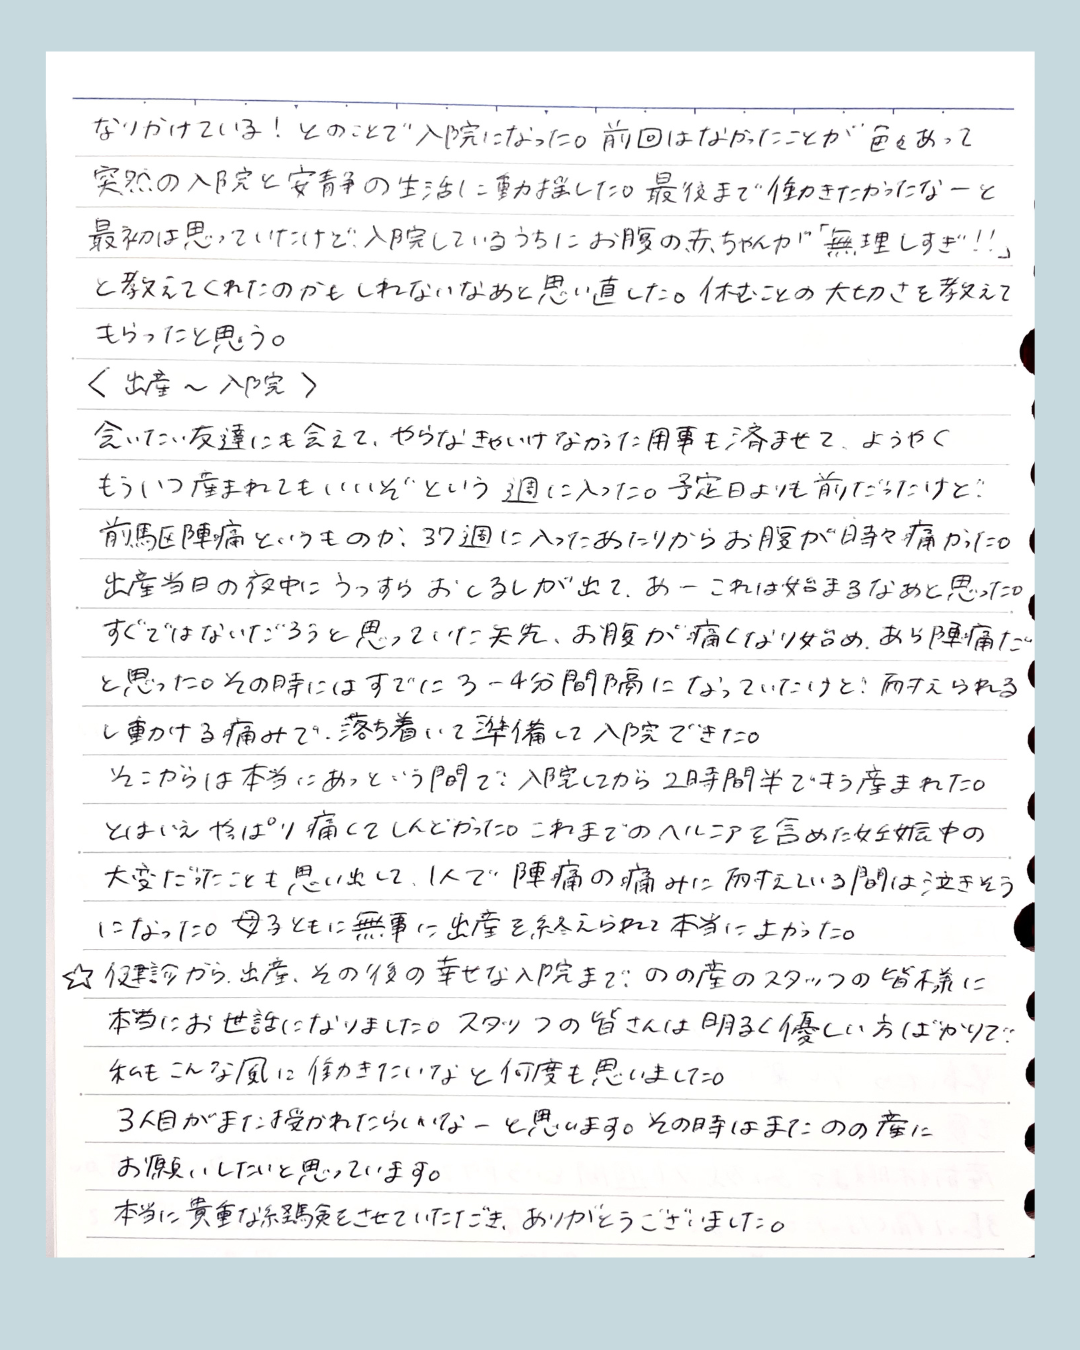 なりかけている！とのことで入院になった。前回はなかったことが色々あって
突然の入院と安静の生活に動揺した。最後まで働きたかったなーと
最初は思っていたけど、入院しているうちにお腹の赤ちゃんが「無理しすぎ!!」
と教えてくれたのかもしれないなぁと思い直した。休むことの大切さを教えて
もらったと思う。
〈出産～入院〉
会いたい友達にも会えて、やらなきゃいけなかった用事も済ませて、ようやく
もういつ産まれてもいいぞという週に入った。予定日よりも前だったけど、
前駆陣痛というものか、37週に入ったあたりからお腹が時々痛かった。
出産当日の夜中にうっすらおしるしが出て、あーこれは始まるなぁと思った。
すぐではないだろうと思っていた矢先、お腹が痛くなり始め、あら陣痛だ
と思った。その時にはすでに3-4分間隔になっていたけど、耐えられる
し動ける痛みで、落ち着いて準備して入院できた。
そこからは本当にあっという間で、入院してから2時間半でもう産まれた。
とはいえやっぱり痛くてしんどかった。これまでのヘルニアを含めた妊娠中の
大変だったことも思い出して、1人で陣痛の痛みに耐えている間は泣きそう
になった。母子ともに無事に出産を終えられて本当によかった。
☆健診から、出産、その後の幸せな入院まで、のの産のスタッフの皆様に
本当にお世話になりました。スタッフの皆さんは明るく優しい方ばかりで、
私もこんな風に働きたいなと何度も思いました。
3人目がまた授かれたらいいなーと思います。その時はまたのの産に
お願いしたいと思っています。
本当に貴重な経験をさせていただき、ありがとうございました。